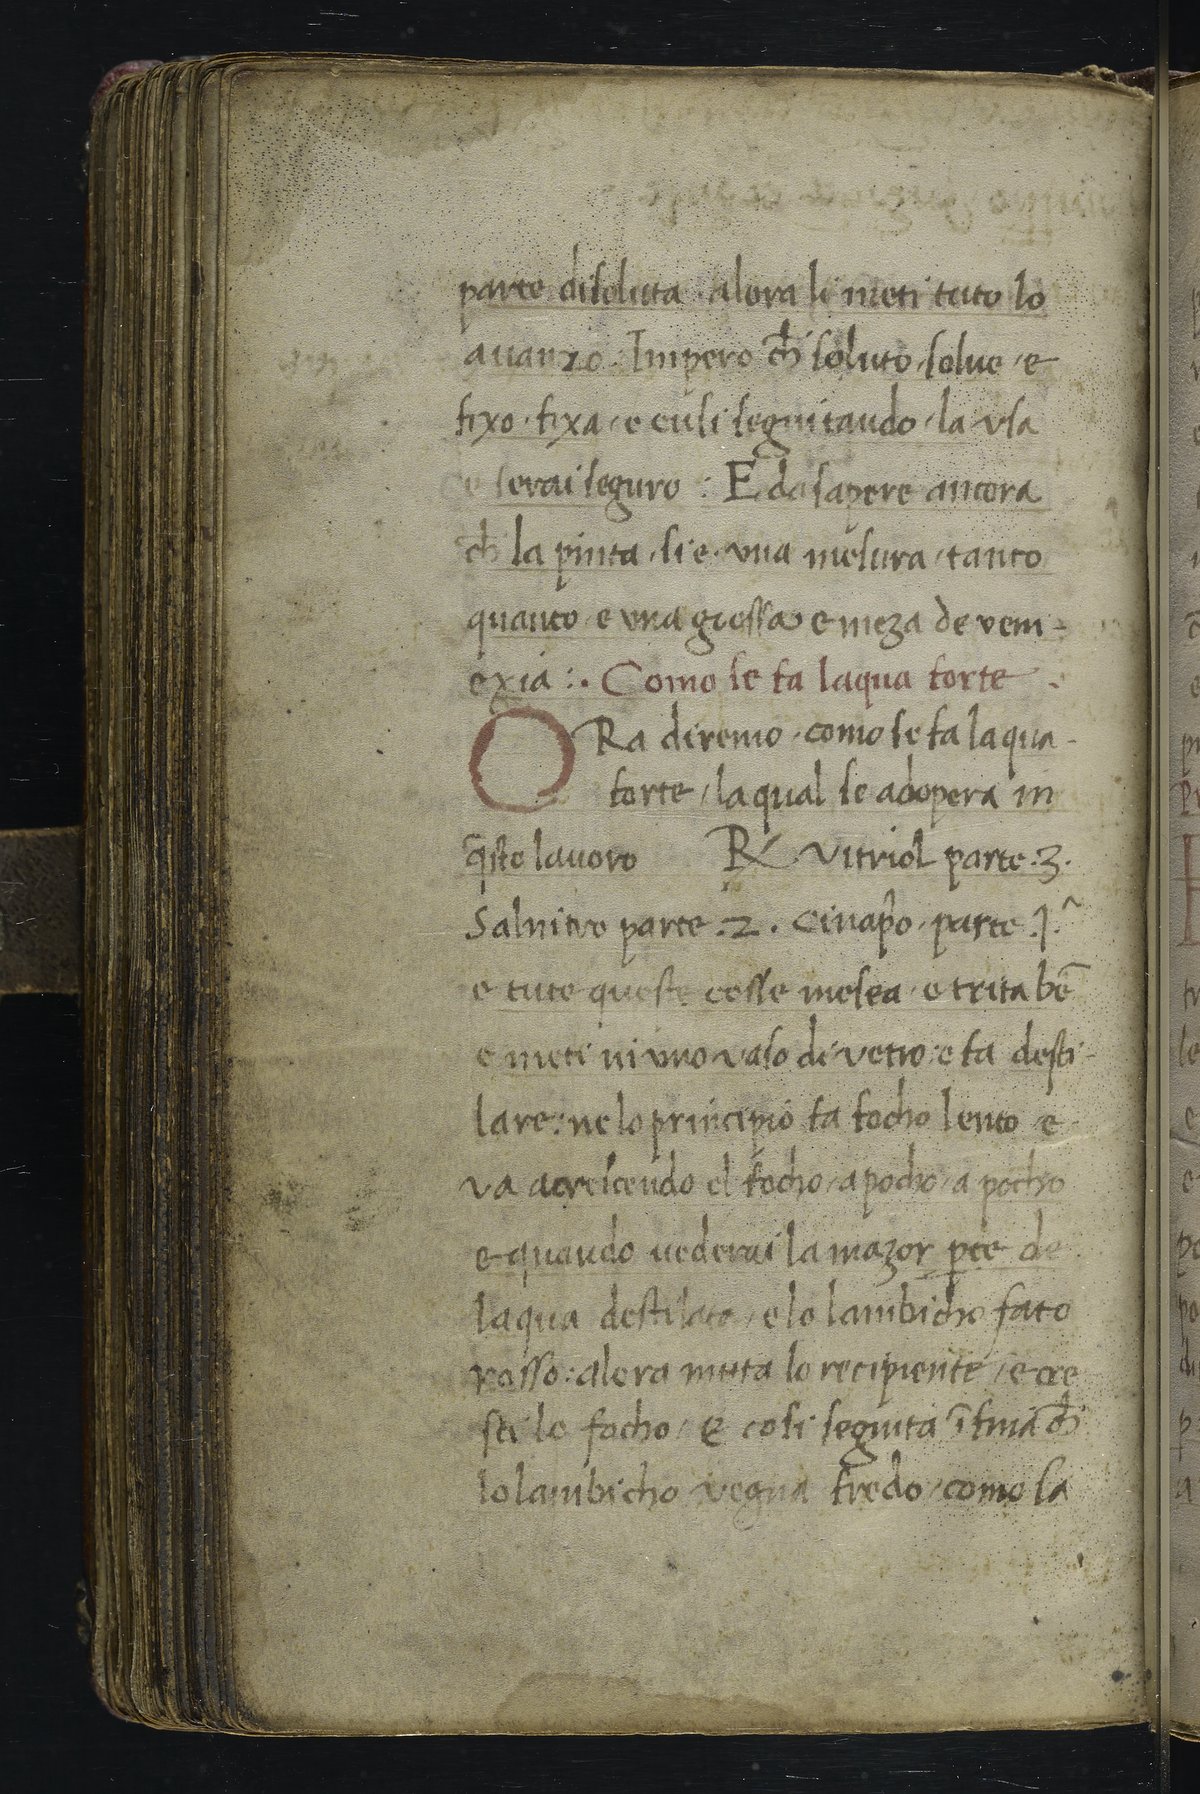 parte disoluta · alora li meti tuto lo
auanzo · Impero ch̄ soluto · solue · e
fixo · fixa · e cusi seguitando · la usa
e serai seguro : E da sapere ancora
ch̄ la pinta · si e · una mesura · tanto
quanto · e una giossa e meza de veni-
exia :· Como se fa laqua forte ·
ORa diremo · como se fa laqua-
forte / laqual se adopera in
q̄sto lauoro ℞ Vitriol parte .3.
Salnitro parte .2. Cinap̄o · parte .1.ᵃ
e tute queste cosse mesea · e trita bē
e meti ni uno vaso di vetro : e fa desti-
lare : ne lo principio fa focho lento · e
va acrescendo el focho · a pocho · a pocho
e quando uederai la mazor p̄te de
laqua destilata / e lo lambicho fato
rosso : alora muta lo recipiente / e cre
sci lo focho / E cosi seguita ī fina ch̄
lo lambicho vegna fredo / como la